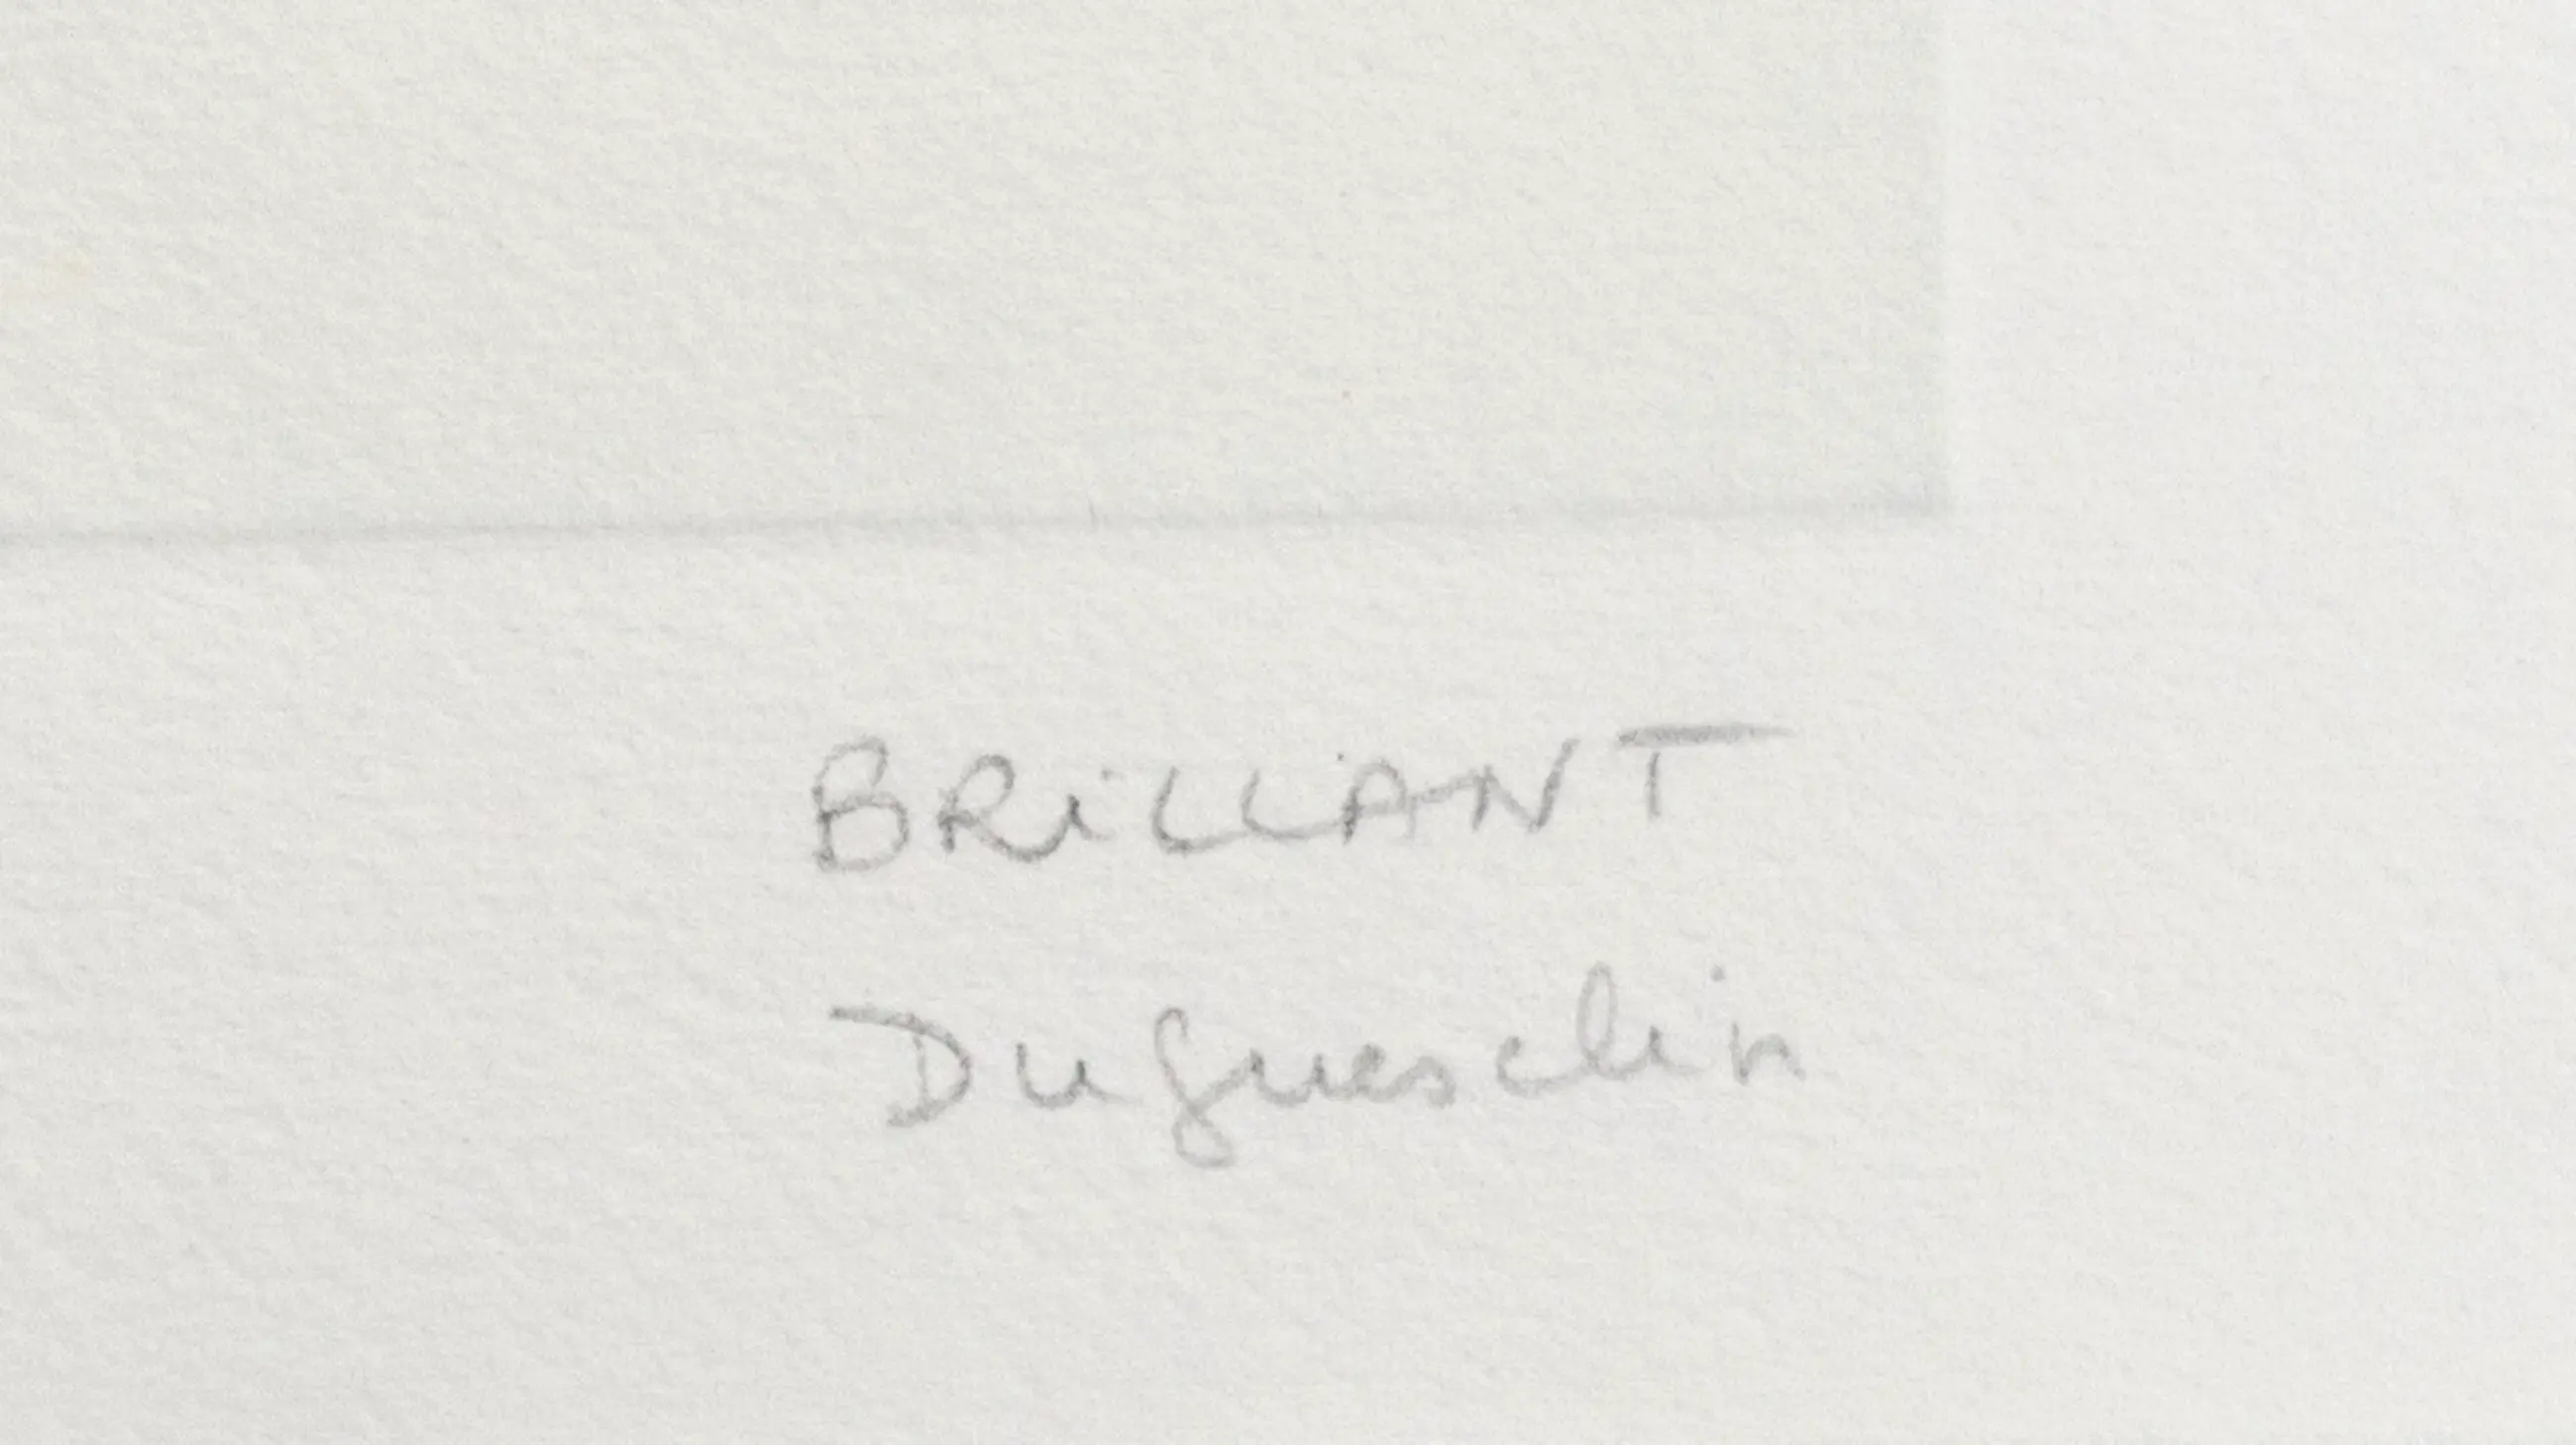 BRiLLANT
Duguesclin